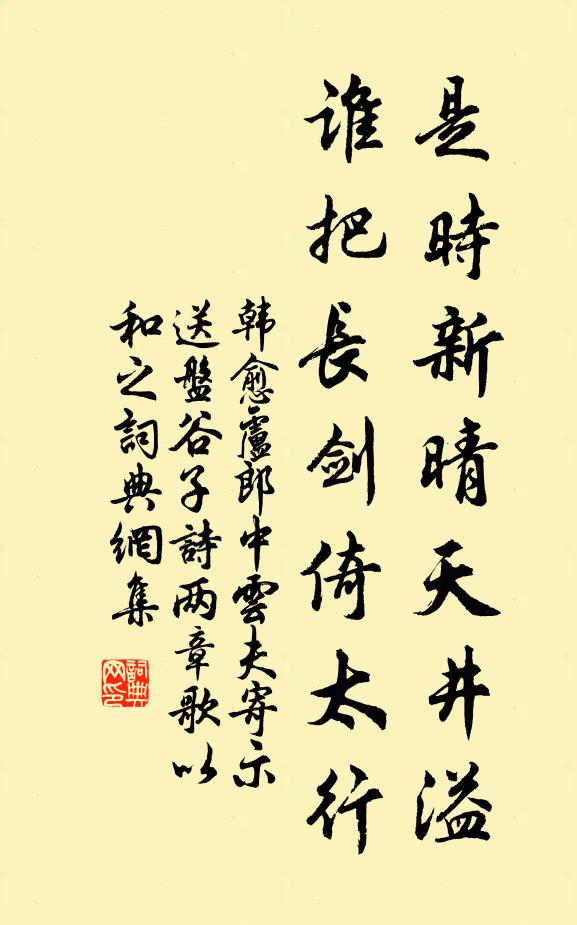 是時新晴天井溢
誰把長劍倚太行
韩愈盧郎中雲夫寄示
送盤谷子詩两章歌以
和之詞典網集
詞典网印